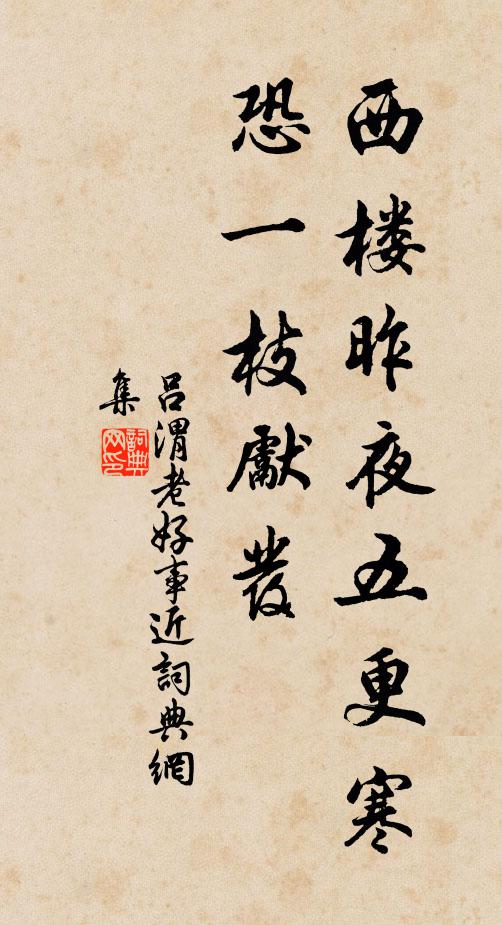 西楼昨夜五更寒
恐一枝獻發
吕渭老好事近詞典網
集
詞典
网印